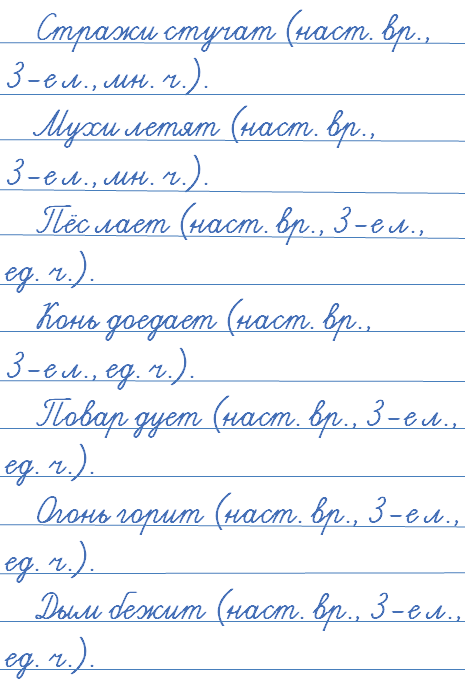 Стражи стучат (наст. вр.,
3-е л., мн. ч.).
Мухи летят (наст. вр.,
3-е л., мн. ч.).
Пёс лает (наст. вр., 3-е л.,
ед. ч.).
Конь доедает (наст. вр.,
3-е л., ед. ч.).
Повар дует (наст. вр., 3-е л.,
ед. ч.).
Огонь горит (наст. вр., 3-е л.,
ед. ч.).
Дым бежит (наст. вр., 3-е л.,
ед. ч.).